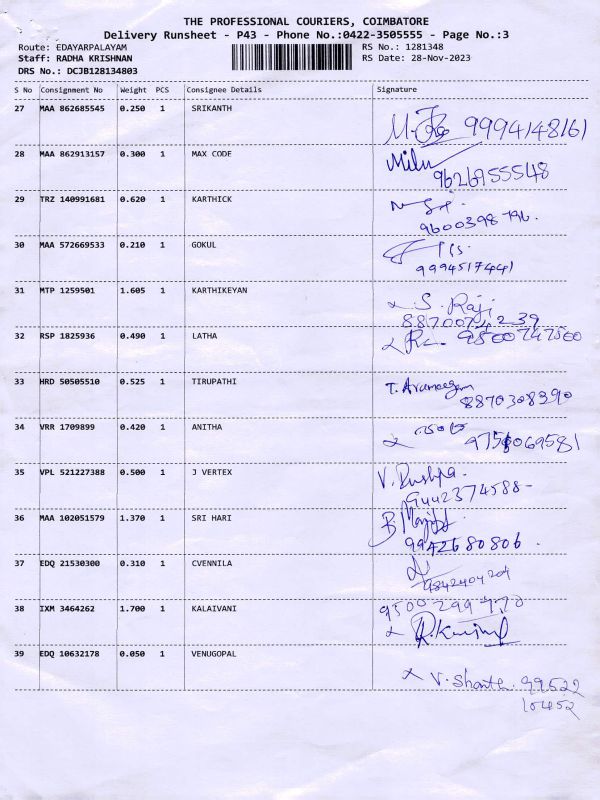 THE PROFESSIONAL COURIERS, COIMBATORE
Delivery Runsheet - P43 - Phone No.:0422-3505555 - Page No.:3
Route: EDAYARPALAYAM RS No.: 1281348
Staff: RADHA KRISHNAN RS Date: 28-Nov-2023
DRS No.: DCJB128134803
S No Consignment No Weight PCS Consignee Details Signature
27 MAA 862685545 0.250 1 SRIKANTH
9994148161
28 MAA 862913157 0.300 1 MAX CODE
9626955548
29 TRZ 140991681 0.620 1 KARTHICK
9600398796.
30 MAA 572669533 0.210 1 GOKUL
9994517441
31 MTP 1259501 1.605 1 KARTHIKEYAN
S. Raji
8870074239
32 RSP 1825936 0.490 1 LATHA
9500747500
33 HRD 50505510 0.525 1 TIRUPATHI
8870308390
34 VRR 1709899 0.420 1 ANITHA
35 VPL 521227388 0.500 1 J VERTEX
V. Pushpa.
9442374588-
36 MAA 102051579 1.370 1 SRI HARI
9942680806.
37 EDQ 21530300 0.310 1 CVENNILA
9842404204
38 IXM 3464262 1.700 1 KALAIVANI
9500299770
39 EDQ 10632178 0.050 1 VENUGOPAL
V. Shanthi. 99522
10452